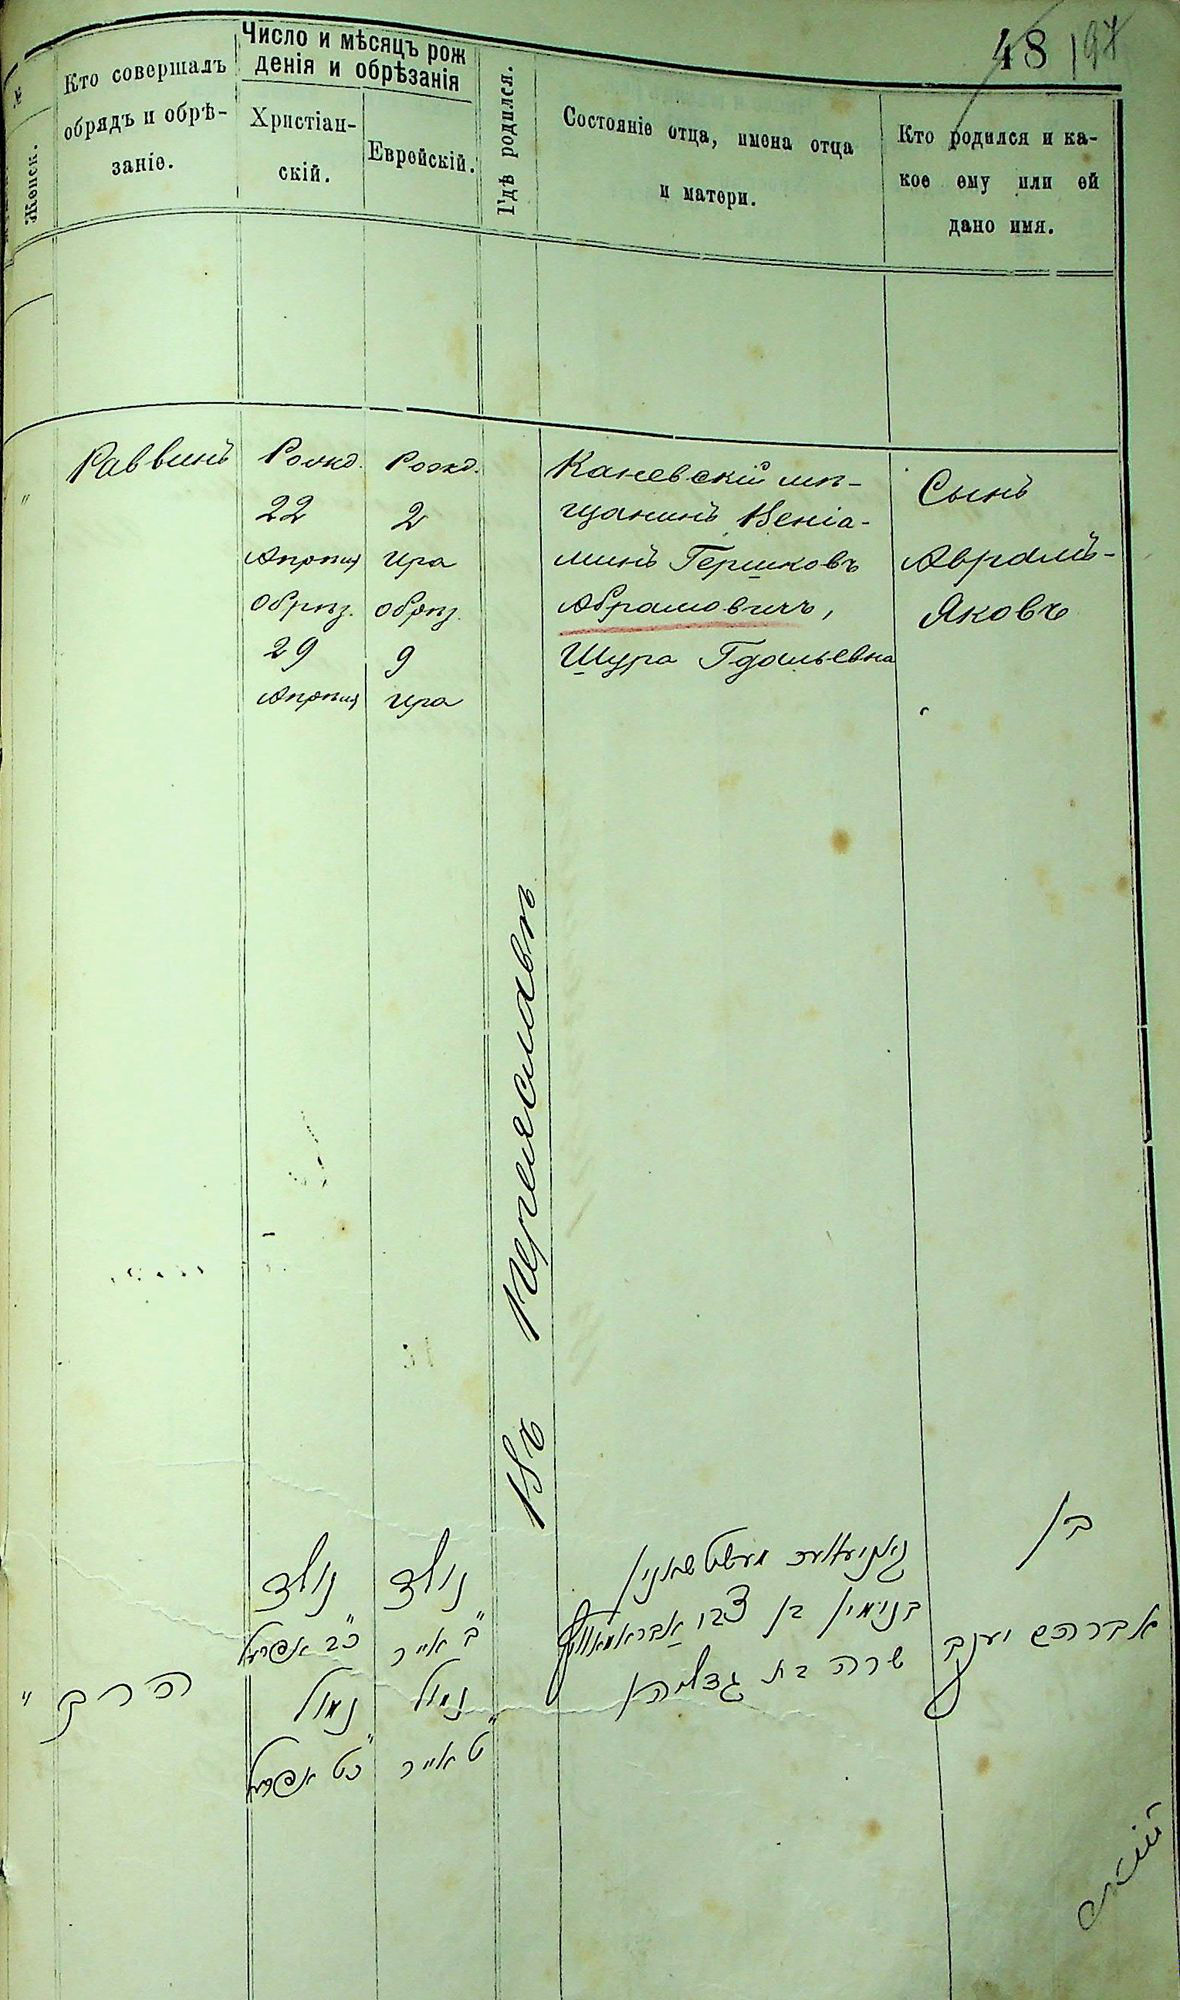 48 197
Женск.
Кто совершалъ
обрядъ и обрѣ-
заніе.
Число и мѣсяцъ рож
денія и обрѣзанія
Христіан-
скій.
Еврейскій.
Гдѣ родился.
Состояніе отца, имена отца
и матери.
Кто родился и ка-
кое ему или ей
дано имя.
"
Раввинъ
Рожд.
22
Апрѣля
обрѣз.
29
Апрѣля
Рожд.
2
Ира
обрѣз.
9
Ира
Въ Переяславѣ
Каневскій мѣ-
щанинъ Веніа-
минъ Гершковъ
Абрамовичъ,
Шура Гдальевна
Сынъ
Аврамъ-
Яковъ
"
הרב
נולד
כ"ב אפריל
נמול
כ"ט אפריל
נולד
ב' אייר
נמול
ט' אייר
מעשטשאנין
בנימין בן צבי אבראמאוויץ
שרה בת גדליהו
בן
אברהם יעקב